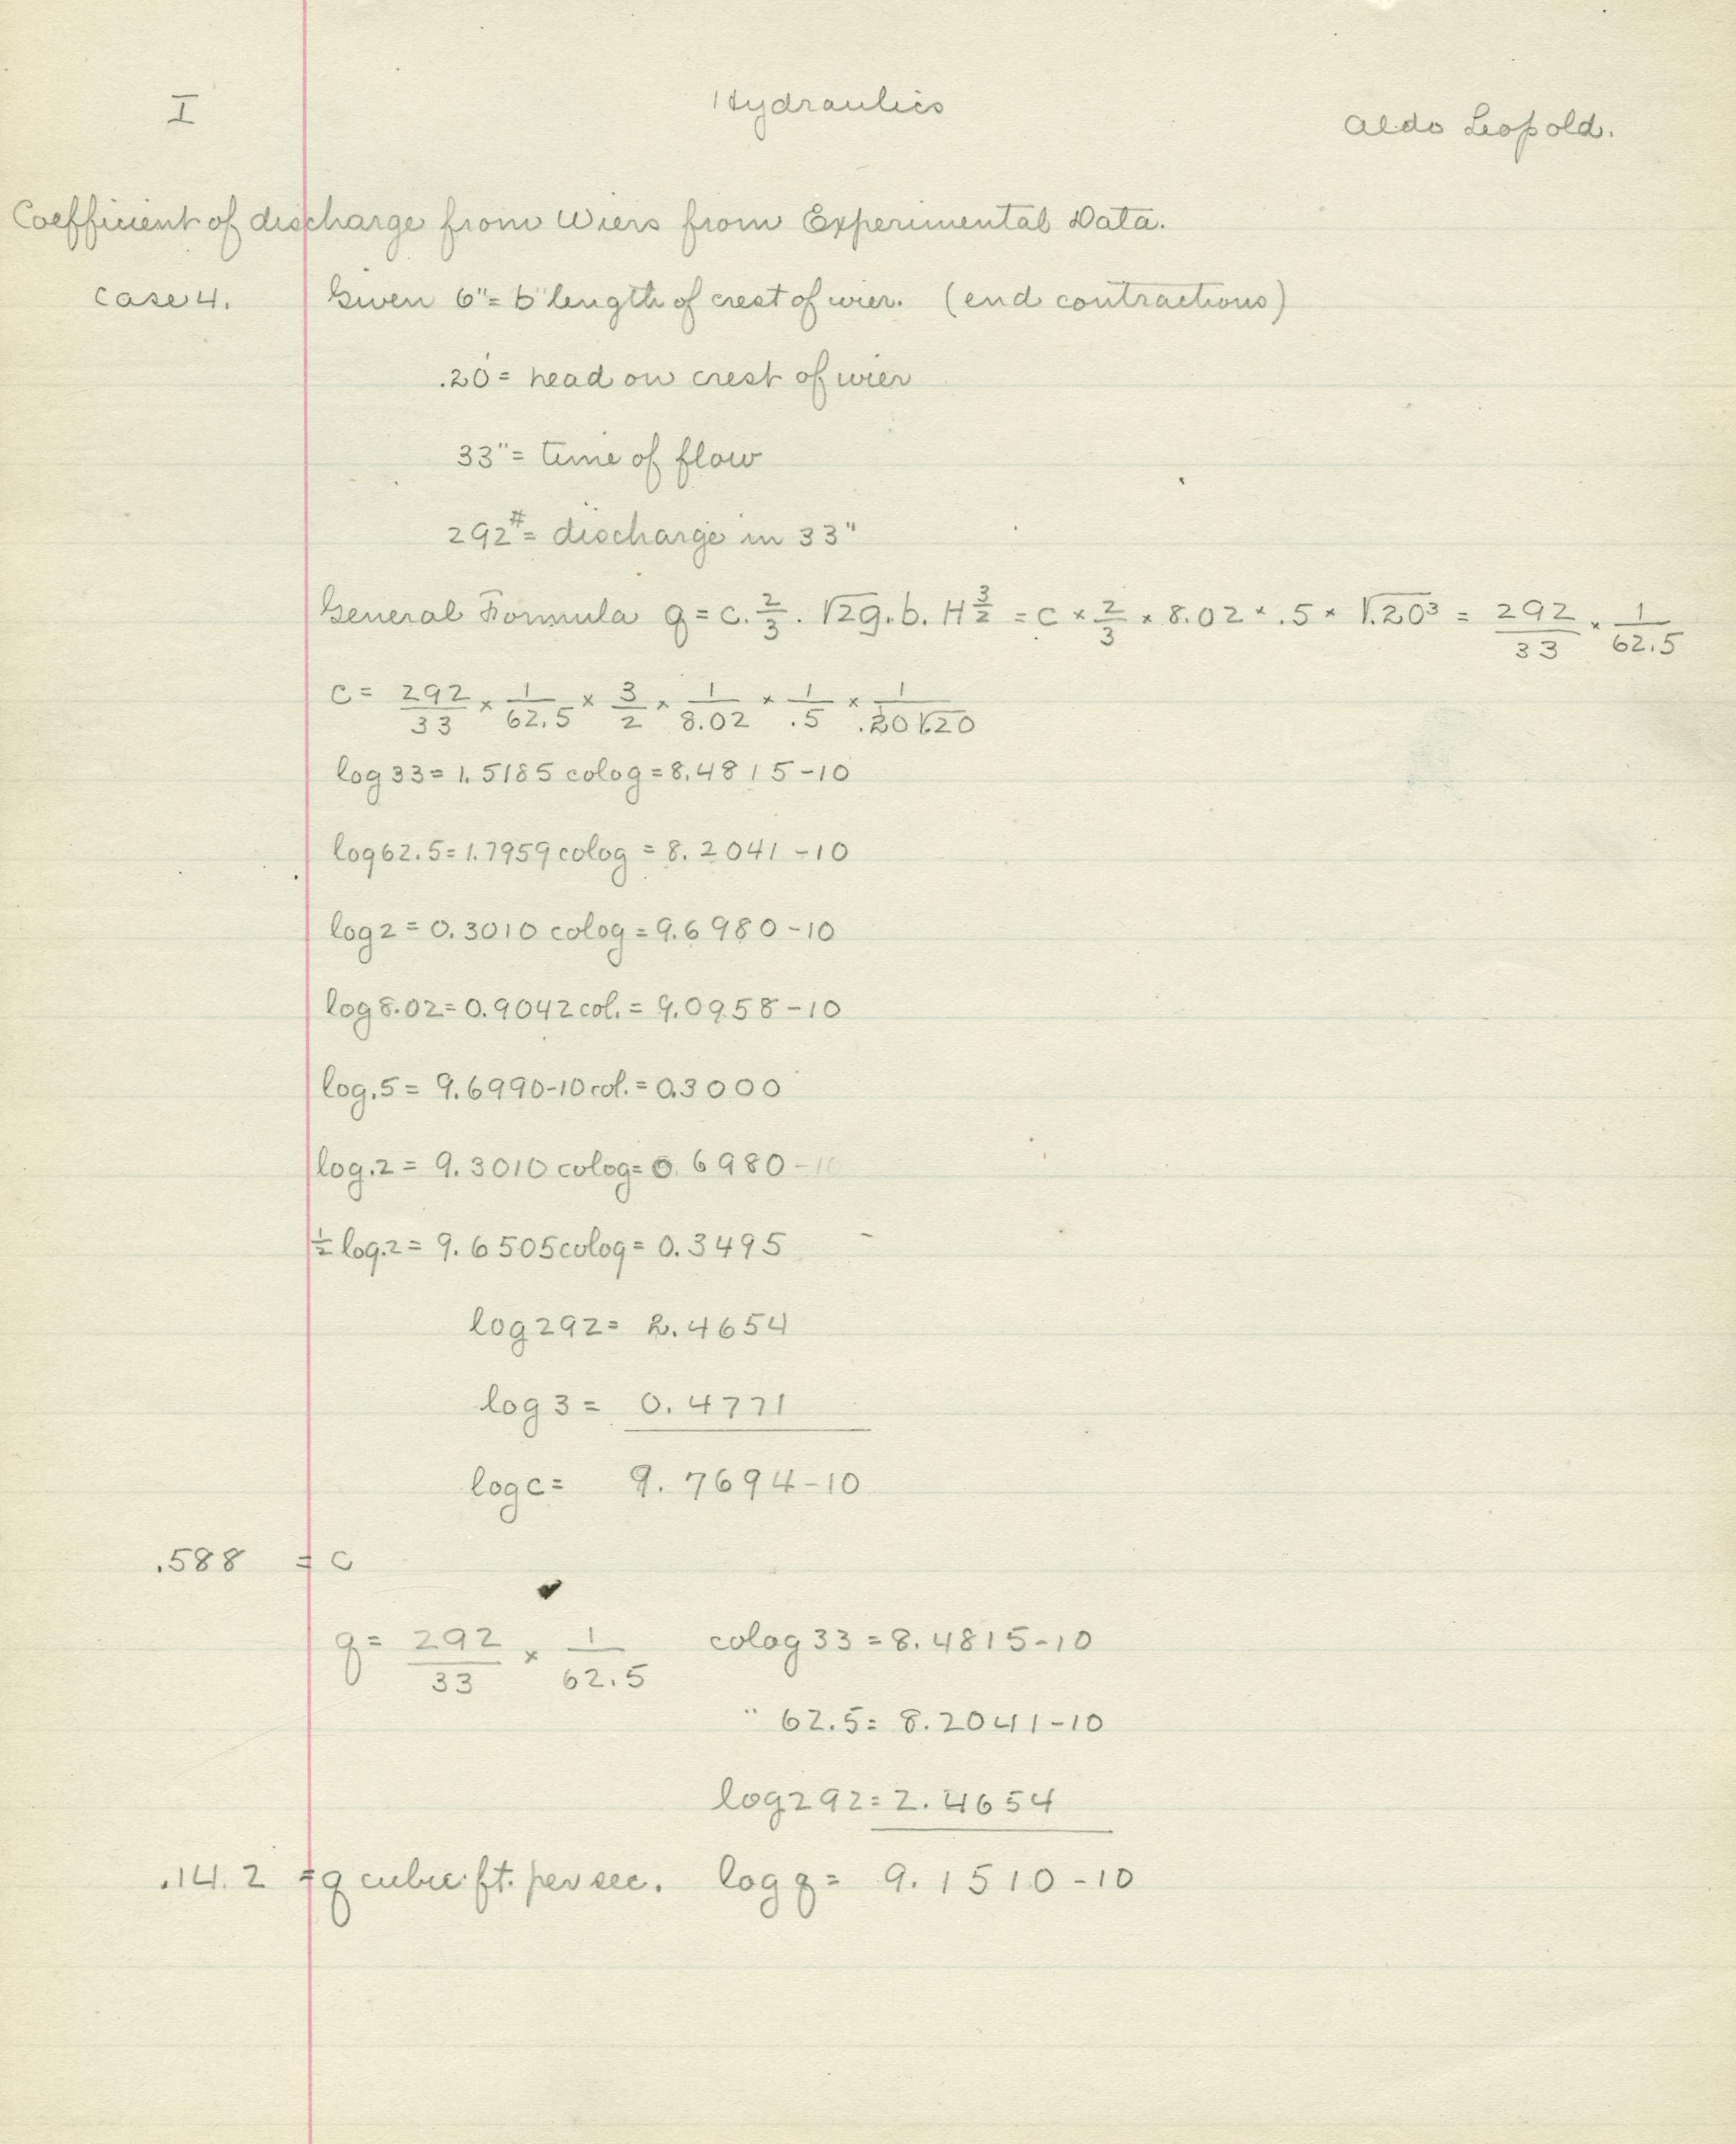 I
Hydraulics
Aldo Leopold.
Coefficient of discharge from Wiers from Experimental Data.
Case 4. Given 6" = b length of crest of wier. (end contractions)
.20 = head on crest of wier
33" = time of flow
292# = discharge in 33"
General Formula q = c. 2/3 . √2g. b. H 3/2 = c × 2/3 × 8.02 × .5 × √.20³ = 292/33 × 1/62.5
c = 292/33 × 1/62.5 × 3/2 × 1/8.02 × 1/.5 × 1/.20√.20
log 33 = 1.5185 colog = 8.4815-10
log 62.5 = 1.7959 colog = 8.2041-10
log 2 = 0.3010 colog = 9.6980-10
log 8.02 = 0.9042 col. = 9.0958-10
log .5 = 9.6990-10 col. = 0.3000
log .2 = 9.3010 colog = 0.6980-10
½ log .2 = 9.6505 colog = 0.3495
log 292 = 2.4654
log 3 = 0.4771
log c = 9.7694-10
.588 = c
q = 292/33 × 1/62.5 colog 33 = 8.4815-10
" 62.5 = 8.2041-10
log 292 = 2.4654
.14.2 = q cubic ft. per sec. log q = 9.1510-10